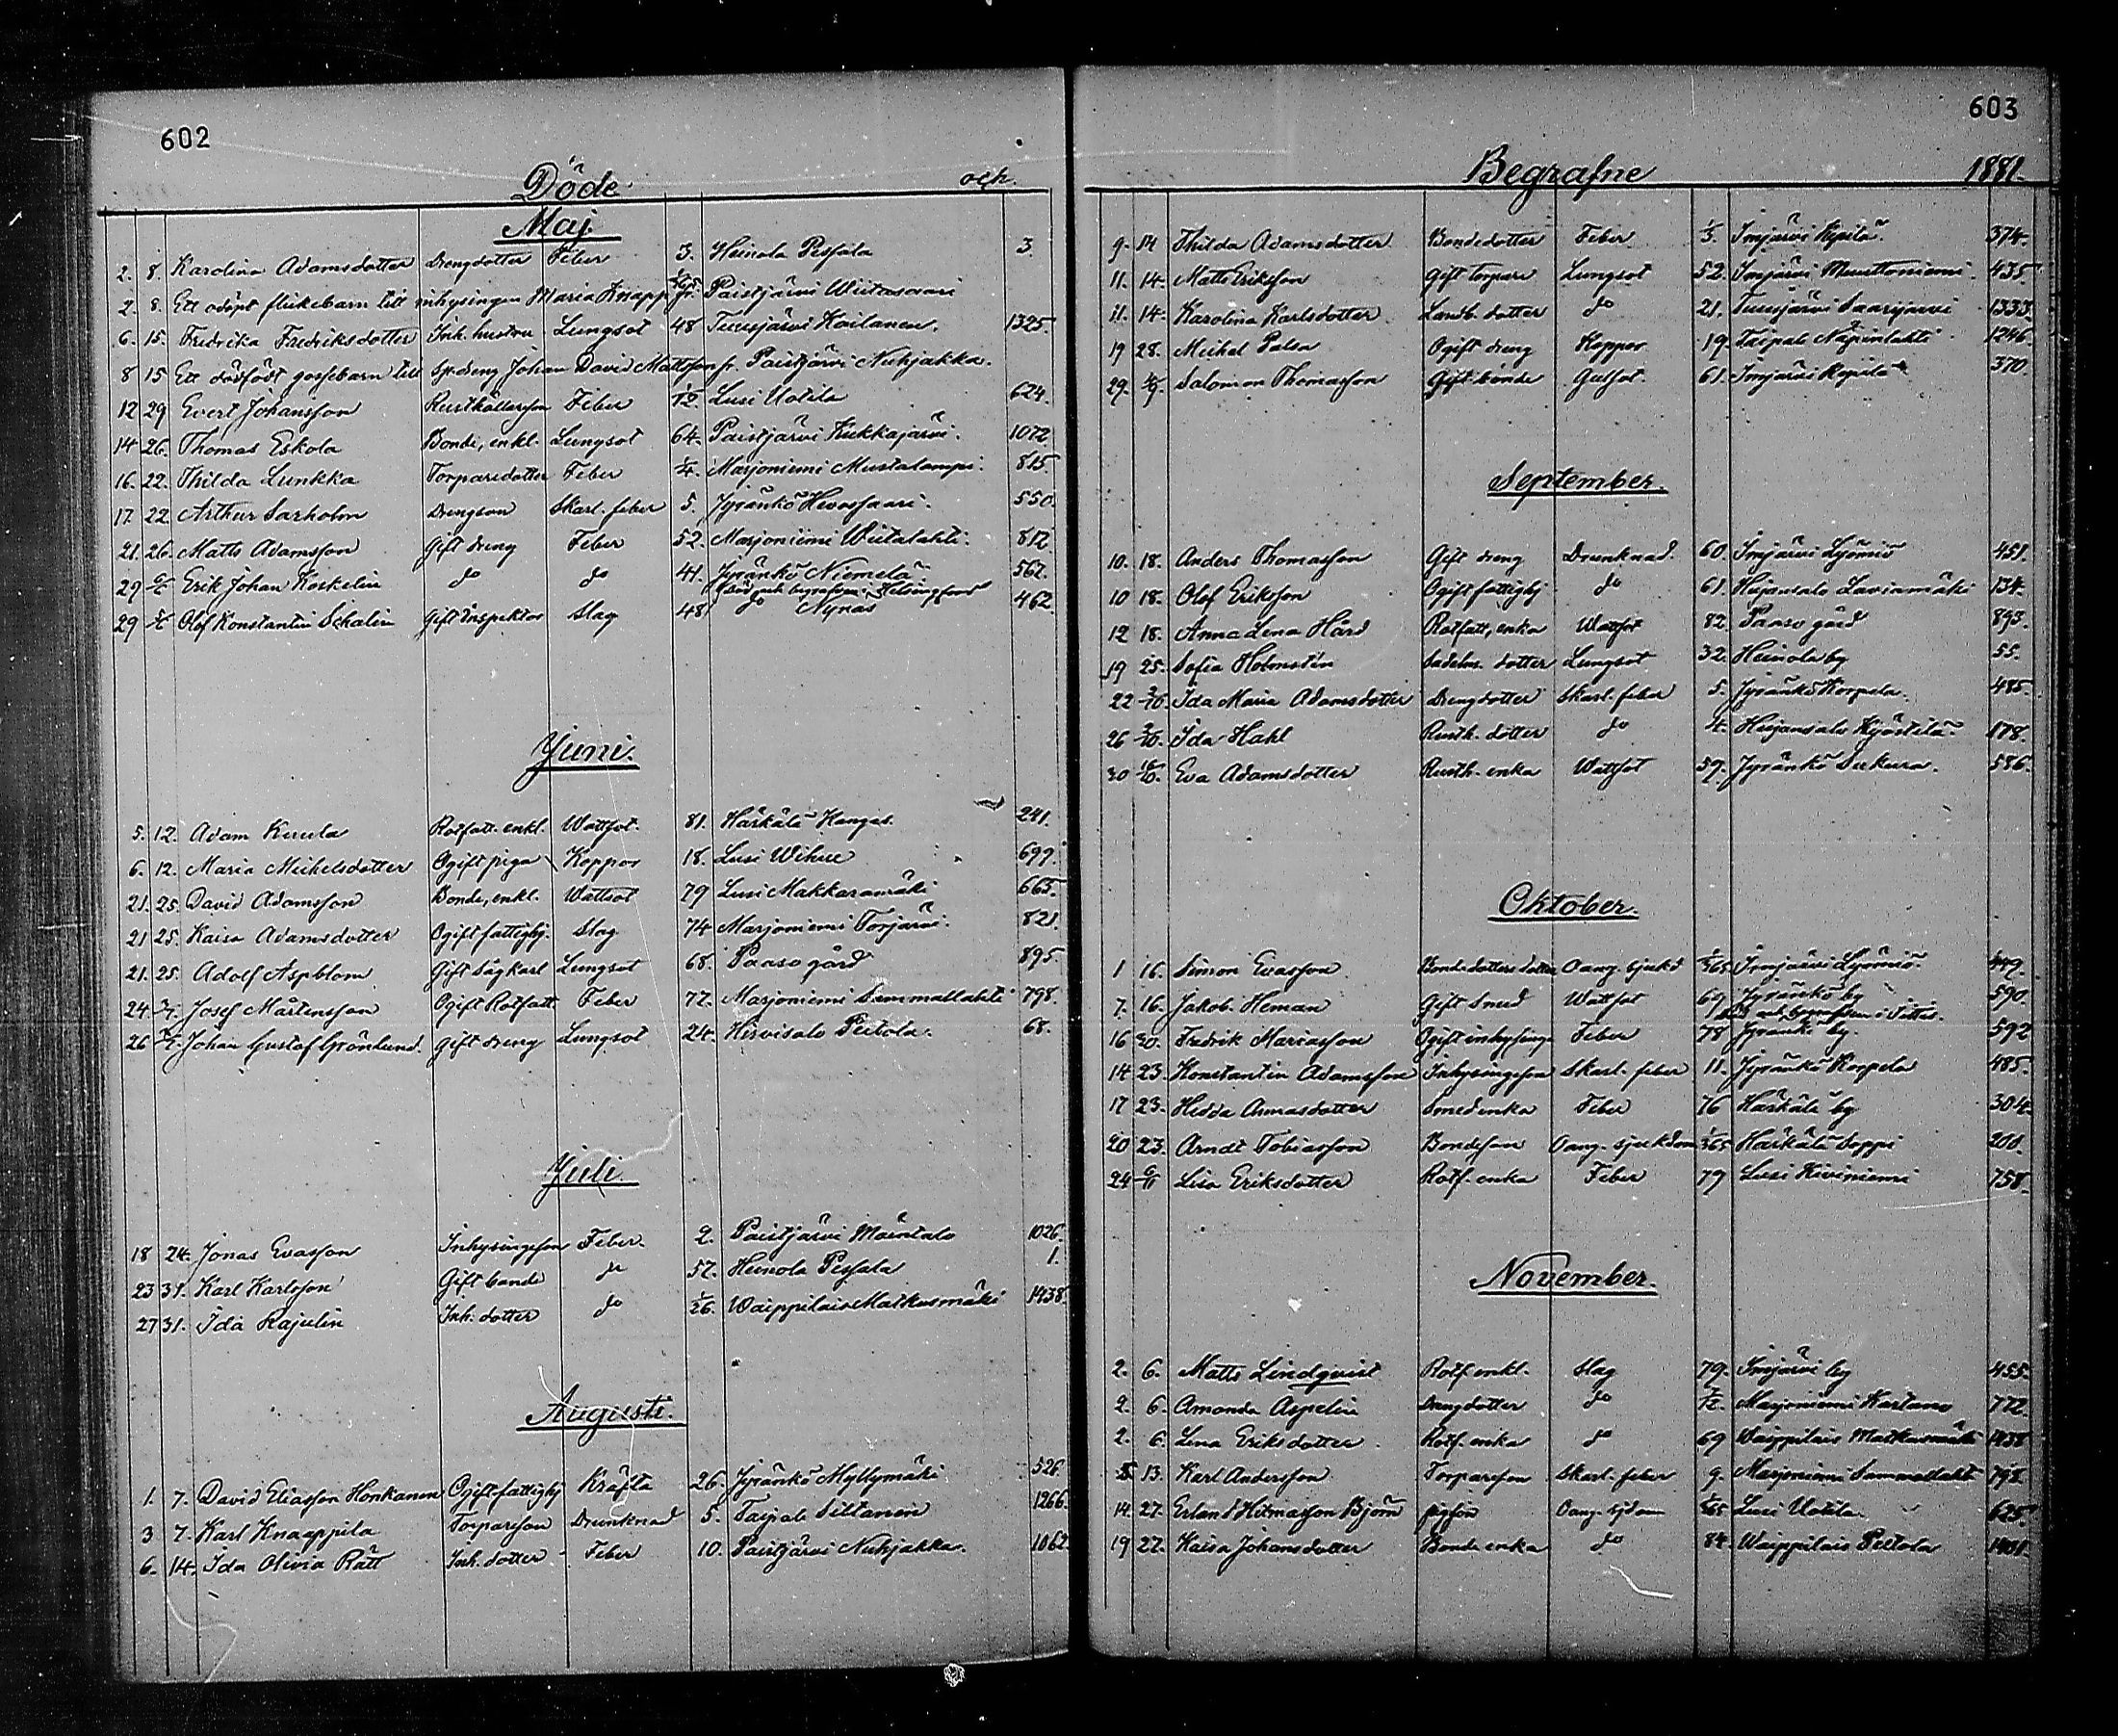 602
Döde och
Maj.
2. 8. Karolina Adamsdotter Drengdotter Feber 3. Heinola Pessala 3.
2. 8. Ett odöpt flickebarn till inhysingen Maria Knapp Paistjärvi Wiitasaari
6. 15. Fredrika Fredriksdotter Inh. hustru Lungsot 48 Tuusjärvi Koilanen. 1325
8 15 Ett dödfödt gossebarn till Sp. dreng Johan David Mattsson fr. Paistjärvi Nuhjakka.
12 29 Evert Johansson Rusthållarson Feber 1/12. Lusi Uotila 624.
14 26. Thomas Eskola Bonde, enkl. Lungsot 64. Paistjärvi Kukkajärvi. 1072
16. 22. Thilda Lunkka Torparedotter Feber 1/4. Marjoniemi Mustalampi. 815
17. 22. Arthur Sarholm Drengson Skarl. feber 5. Jyränkö Hevossaari. 550.
21. 26. Matts Adamsson Gift dreng Feber 52. Marjoniemi Wiitalahti. 812.
29 6/6 Erik Johan Koskelin do do 41. Jyränkö Niemelä 562.
Död och begrafven i Helsingfors
29 Olof Konstantin Schalin Gift Inspektor Slag 48 do Nynäs 462.
Juni.
5. 12. Adam Kerula Rotfatt. enkl. Wattsot. 81. Härkälä Kangas. 241.
6. 12. Maria Michelsdotter Ogift piga Koppor 18. Lusi Wihne 699.
21. 25. David Adamsson Bonde, enkl. Wattsot 79 Lusi Makkaramäki 665.
21 25. Kaisa Adamsdotter Ogift fattighj. Slag 74 Marjoniemi Torjärvi. 821.
21. 25. Adolf Aspblom Gift Sågkarl Lungsot 68. Paaso gård 895
24 3/7. Josef Mårtensson Ogift Rotfatt. Feber 77. Marjoniemi Sammallahti 798.
26 3/7. Johan Gustaf Grönlund. Gift dreng Lungsot 24. Hirvisalo Peltola. 68.
Juli.
18 24. Jonas Evasson Inhysingeson Feber. 2. Paistjärvi Mäntalo 1026.
23 31. Karl Karlsson Gift bonde do 57. Heinola Pessala 1.
27 31. Ida Kajulin Inh. dotter do 1/26. Waippilais Matkusmäki 1438.
Augusti.
1. 7. David Eliasson Honkanen Ogift fattighj Kräfta 26. Jyränkö Myllymäki 526.
3 7. Karl Knaappila Torpareson Drunknad 5. Taipale Siltanen 1266.
6. 14. Ida Olivia Rätt Inh. dotter Feber 10. Paistjärvi Nuhjakka. 1062
603
Begrafne 1881.
9. 14 Thilda Adamsdotter Bondedotter Feber 1/3. Imjärvi Kepilä. 374.
11. 14. Matts Eriksson Gift torpare Lungsot 52. Imjärvi Musttoniemi. 435
11. 14. Karolina Karlsdotter Landb. dotter do 21. Tuusjärvi Saarijärvi 1333.
19 28. Michel Palsa Ogift dreng Koppor 19. Taipale Näpinlahti 1246.
29. 4/9. Salomon Thomasson Gift bonde Gulsot. 61. Imjärvi Kepilä 370
September.
10. 18. Anders Thomasson Gift dreng Drunknad. 60. Imjärvi Lyömiö 451.
10 18. Olof Eriksson Ogift fattighj do 61. Hujansalo Laviamäki 134.
12 18. Anna Lena Hård Rotfatt, enka Wattsot 82. Paaso gård 893.
19 25. Sofia Holmstén Sadelm. dotter Lungsot 32. Heinola by 55.
22 2/10. Ida Maria Adamsdotter Drengdotter Skarl. feber 5. Jyränkö Korpela. 485.
26 2/10. Ida Hahl Rusth. dotter do 4. Hujansalo Kyöstilä 178.
30 16/10. Eva Adamsdotter Rusth. enka Wattsot 59. Jyränkö Sukura. 586.
Oktober.
1 16. Simon Evasson Bondedotters Oang. sjukd 2/365 Imjärvi Lyömiö. 449.
7. 16. Jakob Heman Gift Smed Wattsot 69 Jyränkö by 590.
Död och begrafven i Sittis.
16 30. Fredrik Mariasson Ogift inhysing Feber 78 Jyränkö by. 592
14 23. Konstantin Adamsson Inhysingeson Skarl. feber 11. Jyränkö Korpela 485.
17 23. Hedda Annasdotter Smedenka Feber 76 Härkälä by 304.
20 23. Arndt Tobiasson Bondeson Oang. sjukdom 1/365 Härkälä Seppi 200.
24 6/11 Lisa Eriksdotter Rotf. enka Feber 79 Lusi Kiviniemi 758.
November.
2. 6. Matts Lindqvist Rotf. enkl. Slag 79. Imjärvi by 455.
2. 6. Amanda Aspelin Drengdotter do Marjoniemi Kartano 772.
2. 6. Lena Eriksdotter. Rotf. enka do 69 Waippilais Matkusmäki 1438
5 13. Karl Andersson Torpareson Skarl. feber 9. Marjoniemi Sammallahti 798
14. 27. Erland Hilmasson Björn pigson Oang. sjdom 1/365 Lusi Uotila. 625.
19 27. Kaisa Johansdotter Bonde enka do 84. Waippilais Peltola 1401.